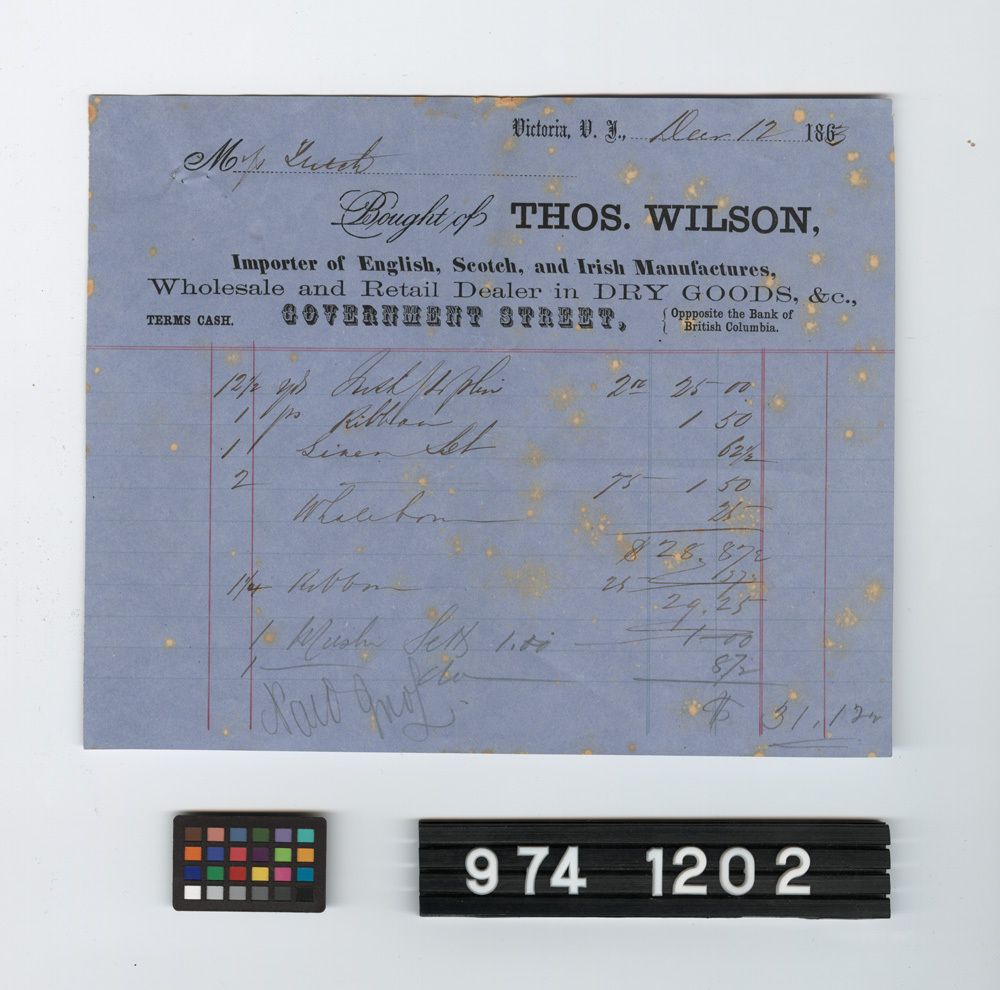 Victoria, V. I., Decr. 12 1863
M
Bought of THOS. WILSON,
Importer of English, Scotch, and Irish Manufactures,
Wholesale and Retail Dealer in DRY GOODS, &c.,
TERMS CASH. GOVERNMENT STREET, { Oppposite the Bank of
British Columbia.
12½ yds Irish Poplin 2 00 25 00
1 ps Ribbon 1 50
1 Linen Set 62½
2 75 1 50
Whalebone 25
$ 28.87½
1½ Ribbon 25 37½
29.25
1 Muslin Setts 1.00 1-00
1 do 87½
$ 31.12½
974 1202